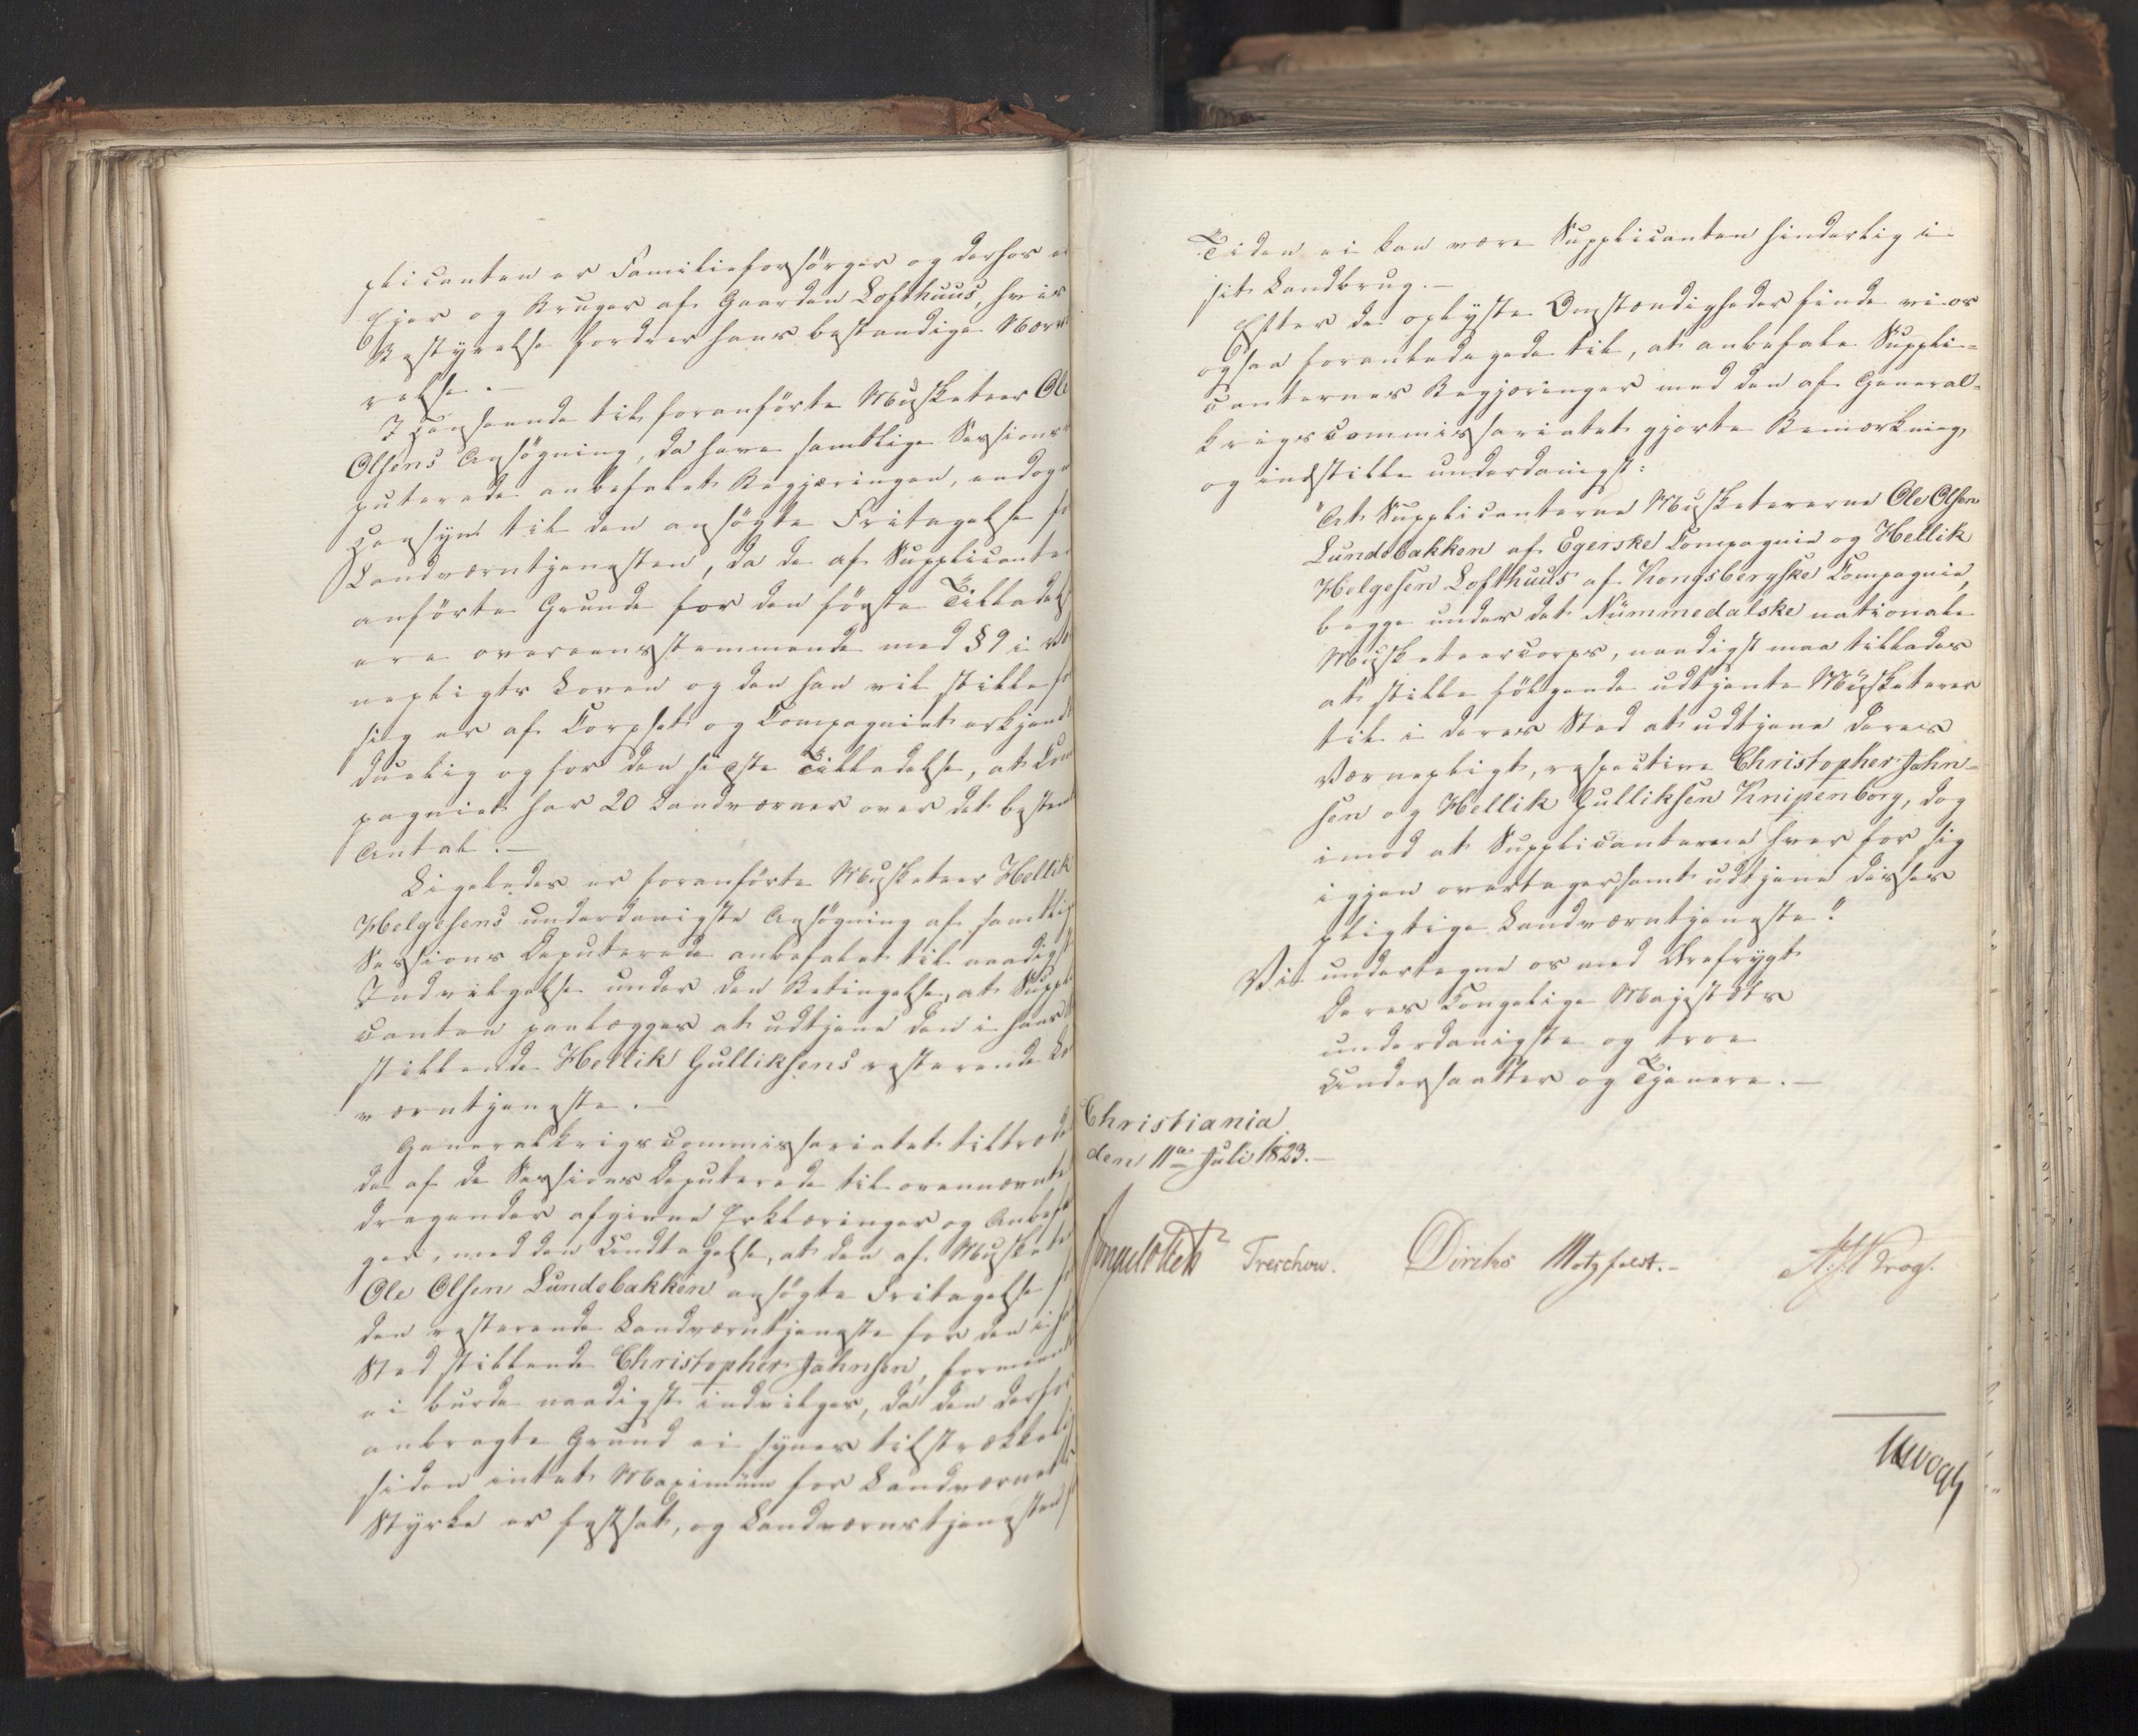 plicanten er Familieforsörger og derhos
Ejer og Bruger af Gaarden Lofthuus, hvis
Bestyrelse fordrer hans bestandige Nærvæ
relse.—
I Henseende til foranförte Musketeer Ole
Olsens Ansögning, da have samtlige Sessions
puterede anbefalet Begjæringen, endog
Hensyn til den ansögte Fritagelse
Landværntjenesten, da de af Supplicanten
anförte Grunde for den förste Tilladelse
ere overeensstemmende med § 9 i
nepligts Loven og den han vil stille
sig er af Corpset og Compagniet erkjendt
duelig og for den sidste Tilladelse, at Com
pagniet har 20 Landværner over det bestemte
Antal.—
Ligeledes er foranförte Musketeer Hellik
Helgesens underdanigste Ansögning af samtlige
Sessions Deputerede anbefalet til naadigst
Indvilgelse under den Betingelse, at Suppli
canten paalægges at udtjene den i hans
stillende Hellik Gulliksens resterende
værntjeneste.—
Generalkrigscommissariatet tiltræder
de af de Sessions Deputerede til ovennævnte
dragender afgivne Erklæringer og Anbefa
ger, med den Undtagelse, at den af Musketeer
Ole Olsen Lundebakken ansögte Fritagelse
den resterende Landværntjeneste for den i
Sted stillende Christopher Jahnsen, formeent
ei burde naadigst indvilges, da den derfor
anbragte Grund ei synes tilstrækkelig
siden intet Maximum for Landværnets
Styrke er fastsat, og Landværnstjenesten
Tiden ei kan være Supplicanten hinderlig i
sit Landbrug.—
Efter de oplyste Omstændigheder finde vi os
ogsaa foranledigede til, at anbefale Suppli=
canternes Begjæringer med den af General=
krigscommissariatet gjorte Bemærkning,
og indstille underdanigst:
"At Supplicanterne Musketererne Ole Olsen
Lundebakken af Egerske Compagnie og Hellik
Helgesen Lofthuus af Kongsbergske Compagnie,
begge under det Nummedalske nationale
Musketeercorps, naadigst maa tillades
at stille fölgende udtjente Musketerer
til i deres Sted at udtjene deres
Værnepligt, respective Christopher Jahn=
sen og Hellik Gulliksen Knipenborg, dog
imod at Supplicanterne hver for sig
igjen overtager samt udtjene disses
pligtige Landværntjeneste."
Vi undertegne os med Ærefrygt
Deres Kongelige Majestæts
underdanigste og troe
Undersaatter og Tjenere.—
Christiania
den 11te Juli 1823.—
Treschow. Diriks Motzfeldt.— Krog.